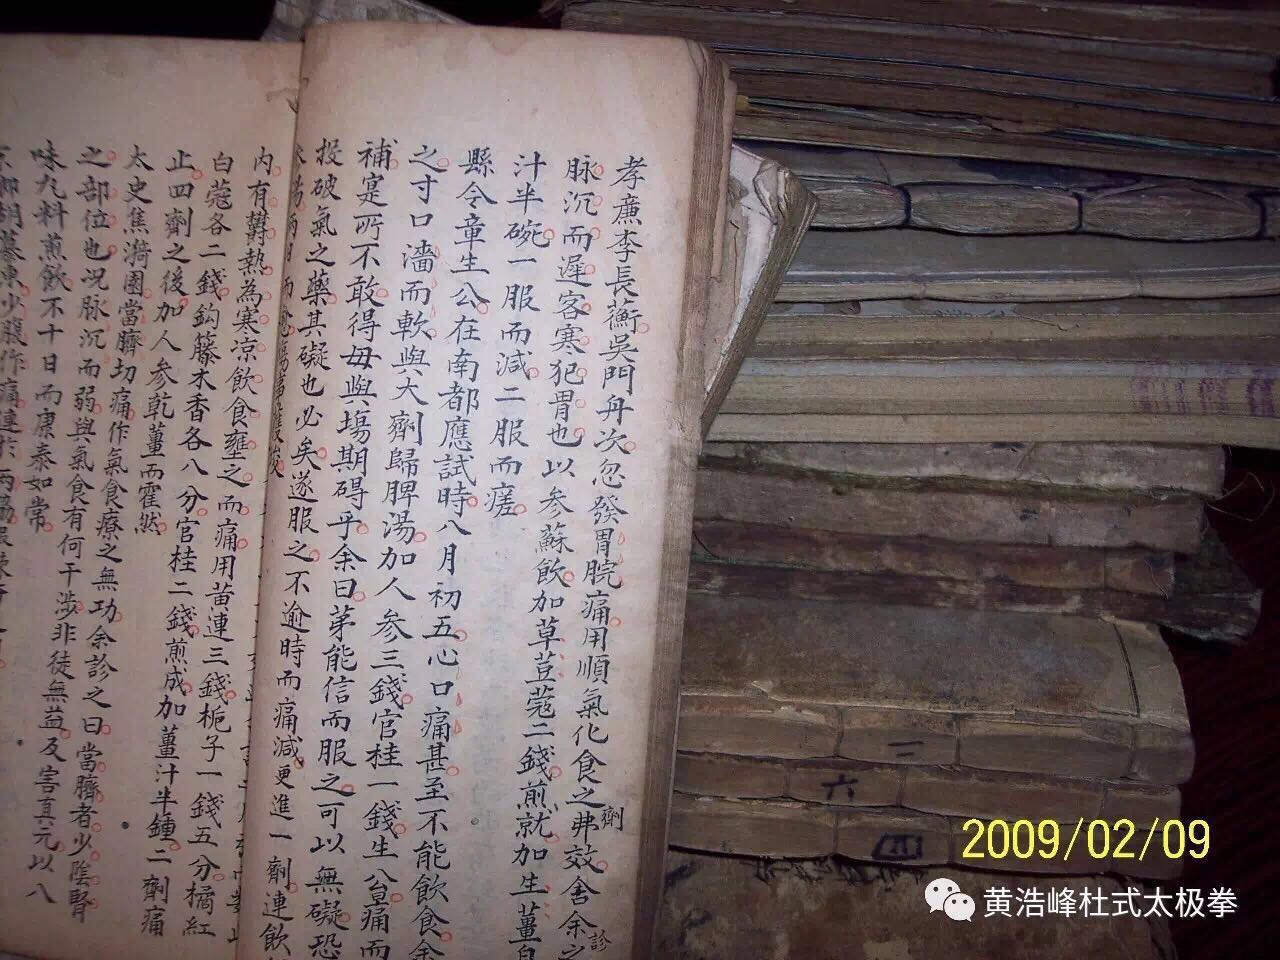 孝廉李長蘅吳門舟次忽發胃脘痛用順氣化食之劑弗效舍余診之
脉沉而遲客寒犯胃也以參蘇飲加草荳蔻二錢煎就加生薑自
汁半碗一服而減二服而瘥
縣令章生公在南都應試時八月初五心口痛甚至不能飲食余
之寸口濇而軟與大劑歸脾湯加人參三錢官桂一錢生公曰痛而
補寔所不敢得毋與塲期碍乎余曰茅能信而服之可以無礙恐
投破氣之藥其礙也必矣遂服之不逾時而痛減更進一劑連飲
内有鬱熱為寒凉飲食壅之而痛用黄連三錢梔子一錢五分橘紅
白蔻各二錢鈎籐木香各八分官桂二錢煎成加薑汁半鍾二劑痛
止四劑之後加人參乾薑而霍然
太史焦漪園當臍切痛作氣食療之無功余診之曰當臍者少陰腎
之部位也况脉沉而弱與氣食有何干涉非徒無益反害真元以八
味九料煎飲不十日而康泰如常
胡慕東少腹作痛連於兩脇
二
六
四
2009/02/09
黄浩峰杜式太极拳